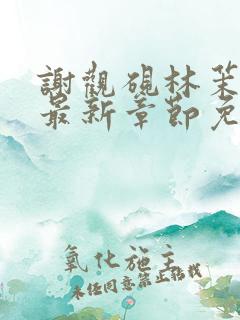 謝觀硯林茉
最新章節免
氧化施主
未经同意禁止转载